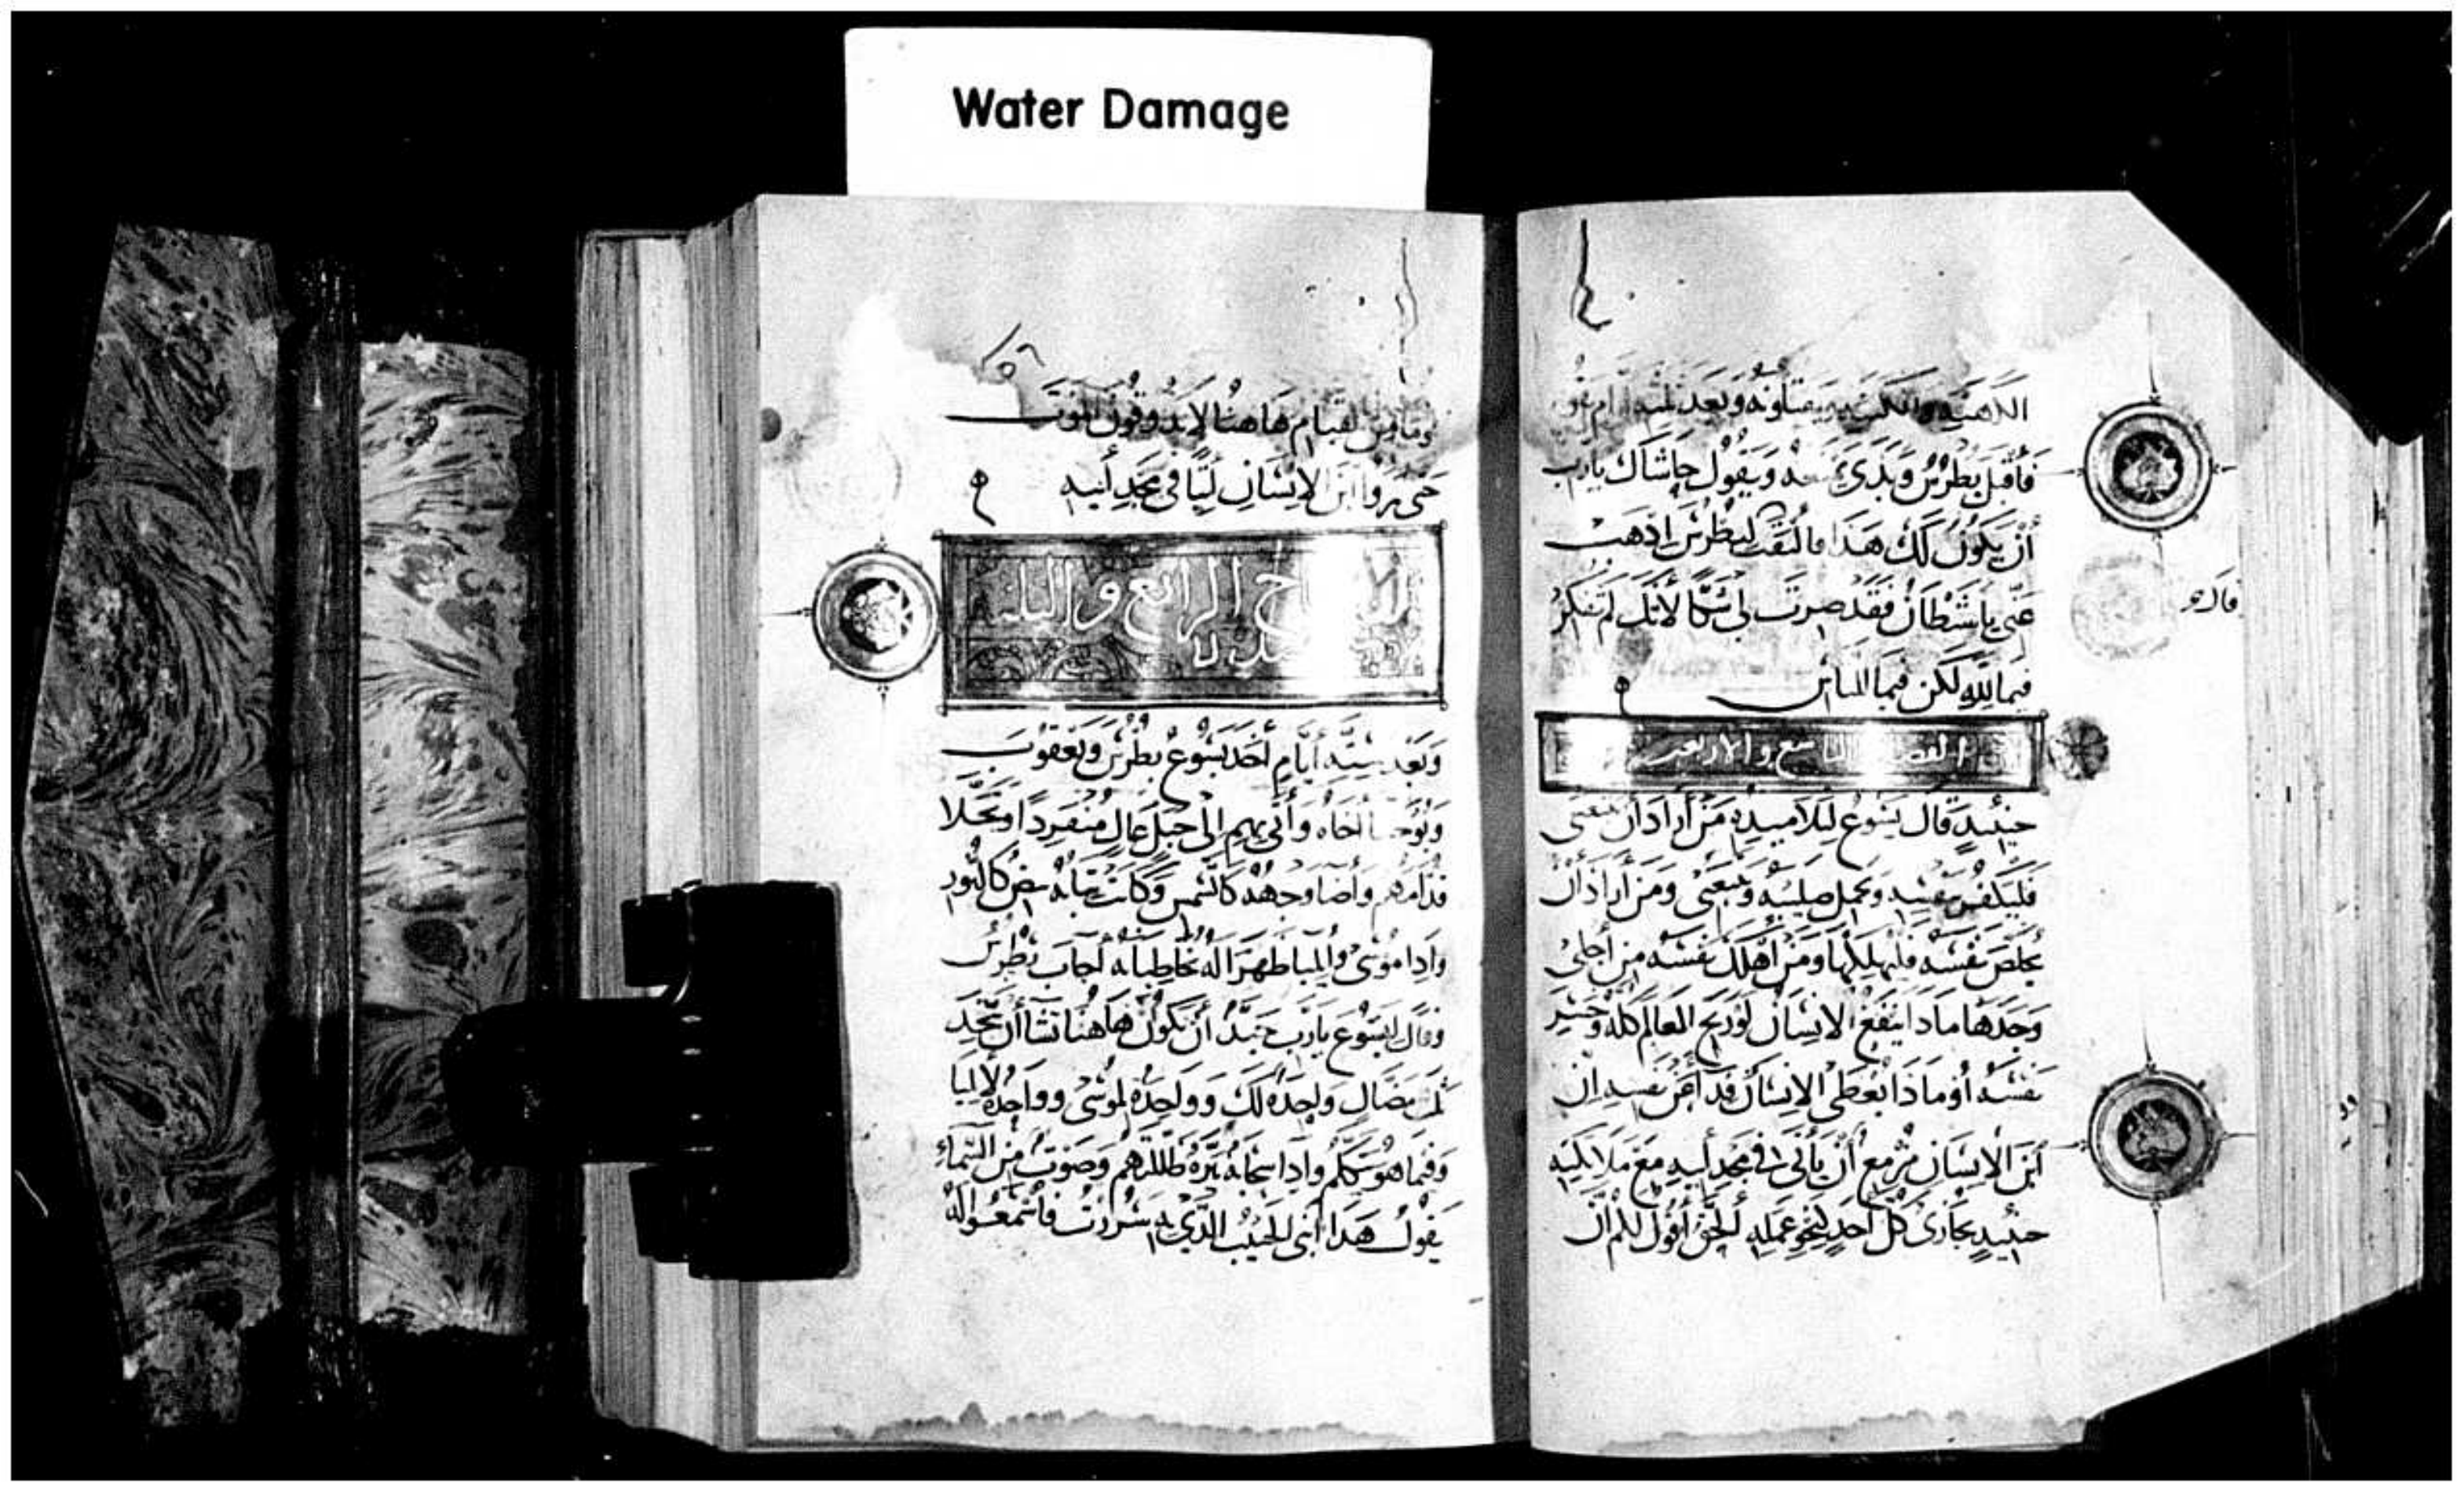 Water Damage
فأقبل بطرس وبدى ويقول حاشاك يارب
أن يكون لك هذا فالتفت لبطرس اذهب
عني ياشيطان فقد صرت لي شكا لأنك لم تفكر
فيما لله لكن فيما للناس
قال
الفصل التاسع والاربعين
حينيد قال يسوع لتلاميده من أراد أن يتبعني
فليكفر بنفسه ويحمل صليبه ويتبعني ومن أراد أن
يخلص نفسه فليهلكها ومن أهلك نفسه من أجلي
وجدها مادا ينفع الانسان لو ربح العالم كله وخسر
نفسه أو ماذا يعطي الانسان فدا عن نفسه ان
ابن الانسان مزمع أن يأتي في مجد أبيه مع ملايكته
حينيد يجازي كل احد كنحو عمله الحق أقول لكم ان
القيام هاهنا لا يدوقون الموت
حتى يروا ابن الانسان اتيا في مجد أبيه
الرابع و
وبعد ستة أيام أخد يسوع بطرس ويعقوب
ويوحنا أخاه وأتى بهم الى جبل عال منفردا وتجلا
قدامهم وأضا وجهه كالشمس وكانت ثيابه بيض كالنور
وادا موسى وايليا ظهرا له يخاطبانه أجاب بطرس
وقال ليسوع يارب جيد أن نكون هاهنا تشا أن نتخد
ثلث مضال واحده لك وواحدة لموسى وواحدة لايليا
وفيما هو يتكلم وادا سحابة نيرة ظللتهم وصوت من السماء
يقول هدا ابني الحبيب الدي به سررت فاسمعوا له